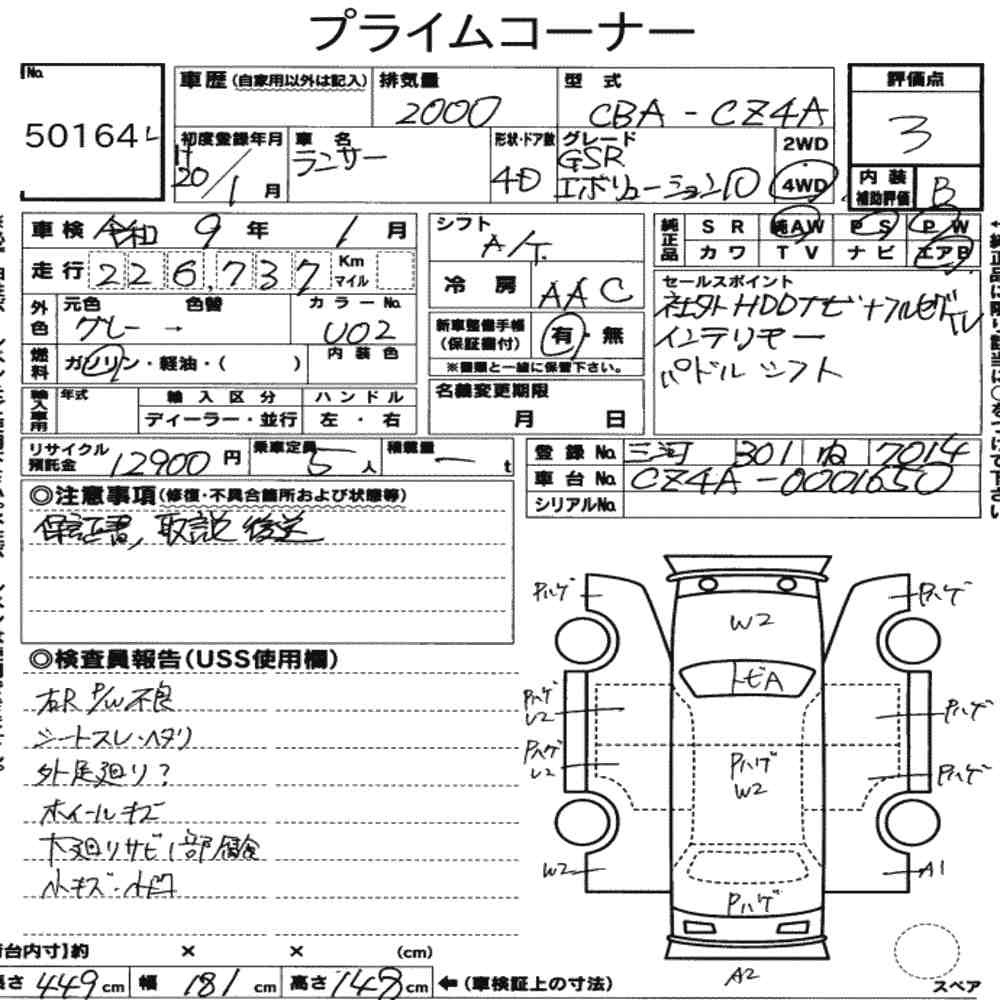 プライムコーナー
No.
50164
車歴(自家用以外は記入)
排気量
2000
型式
CBA - CZ4A
評価点
3
初度登録年月
H
20/1月
車名
ランサー
形状・ドア数
4D
グレード
GSR
エボリューション10
2WD
4WD
内装
補助評価
B
車検 令和 9年 1月
走行 226,737 Km
マイル
外色
元色 色替 カラーNo.
グレー → U02
燃料
ガソリン・軽油・( )
内装色
輸入車用
年式
輸入区分
ハンドル
ディーラー・並行
左・右
シフト
A/T.
冷房 AAC
新車整備手帳
(保証書付)
有・無
※書類と一緒に保管下さい。
名義変更期限
月 日
純正品
SR 純AW PS PW
カワ TV ナビ エアB
セールスポイント
社外HDDナビ+フルセグTV
インテリキー
パドルシフト
リサイクル
預託金
12900円
乗車定員
5人
積載量
ー t
登録No. 三河 301 ね 7014
車台No. CZ4A-0001650
シリアルNo.
◎注意事項(修復・不具合箇所および状態等)
保証書, 取説 後送
◎検査員報告(USS使用欄)
右R P/W不良
シートスレ・ヘタリ
外足廻り?
ホイールキズ
下廻りサビ1部腐食
小キズ・小凹
Pハゲ
Pハゲ
W2
トビA
Pハゲ
U2
Pハゲ
Pハゲ
U2
Pハゲ
W2
Pハゲ
W2
A1
Pハゲ
A2
スペア
荷台内寸]約 × × (cm)
長さ 449cm 幅 181cm 高さ 148cm ←(車検証上の寸法)